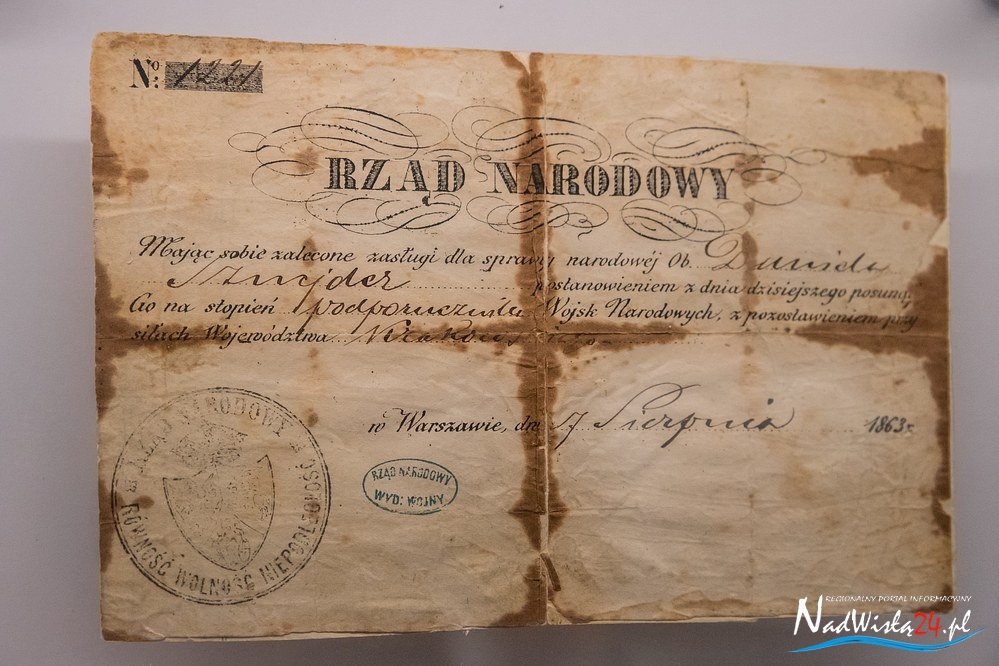 No: 1221
RZĄD NARODOWY
Mając sobie zalecone zasługi dla sprawy narodowéj Ob. Daniela
Sznejder postanowieniem z dnia dzisiejszego posunął
Go na stopień podporucznika Wojsk Narodowych, z pozostawieniem przy
siłach Województwa Krakowskiego
w Warszawie, dnia 17 Sierpnia 1863 r.
RZĄD NARODOWY
RÓWNOŚĆ WOLNOŚĆ NIEPODLEGŁOŚĆ
RZĄD NARODOWY
WYD: WOJNY
REGIONALNY PORTAL INFORMACYJNY
NadWisłą24.pl